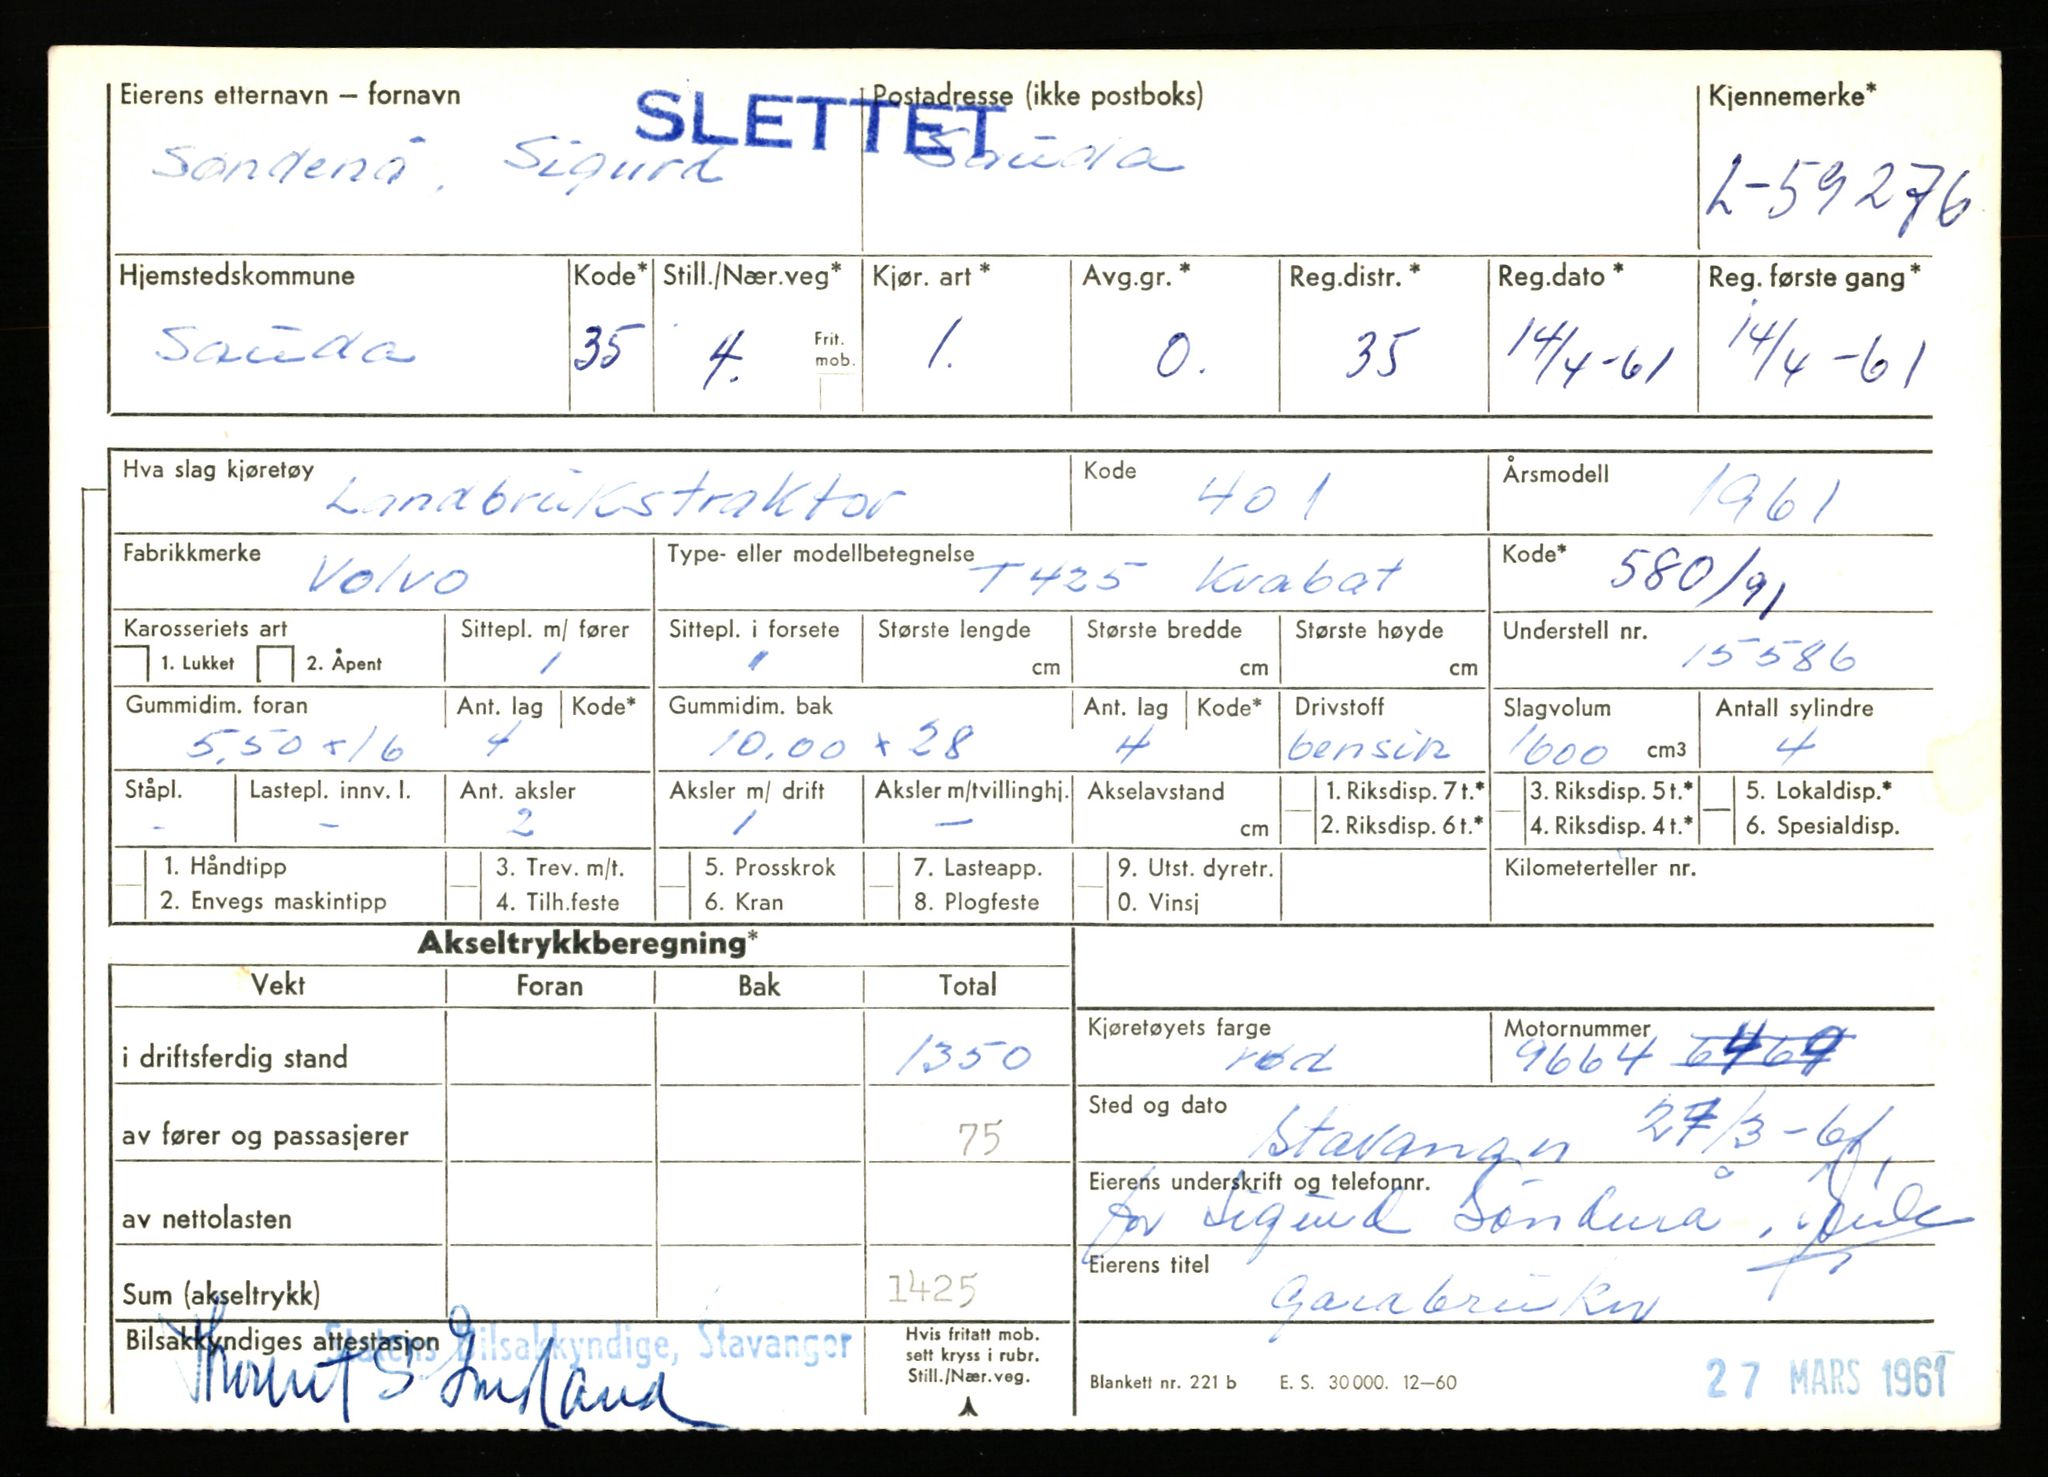 Eierens etternavn – fornavn SLETTET Postadresse (ikke postboks) Kjennemerke*
Søndenå, Sigurd Sauda L-59276
Hjemstedskommune Kode* Still./Nær.veg* Kjør. art * Avg.gr. * Reg.distr. * Reg.dato * Reg. første gang *
Sauda 35 4. Frit. mob. 1. 0. 35 14/4-61 14/4-61
Hva slag kjøretøy Landbrukstraktor Kode 401 Årsmodell 1961
Fabrikkmerke Volvo Type- eller modellbetegnelse T425 Krabat Kode* 580/91
Karosseriets art Sittepl. m/ fører Sittepl. i forsete Største lengde Største bredde Største høyde Understell nr.
1. Lukket 2. Åpent 1 1 cm cm cm 15586
Gummidim. foran Ant. lag Kode* Gummidim. bak Ant. lag Kode* Drivstoff Slagvolum Antall sylindre
5,50 x 16 4 10,00 x 28 4 bensin 1600 cm3 4
Ståpl. Lastepl. innv. l. Ant. aksler Aksler m/ drift Aksler m/tvillinghj. Akselavstand 1. Riksdisp. 7 t.* 3. Riksdisp. 5 t.* 5. Lokaldisp.*
- - 2 1 - cm 2. Riksdisp. 6 t.* 4. Riksdisp. 4 t.* 6. Spesialdisp.
1. Håndtipp 3. Trev. m/t. 5. Prosskrok 7. Lasteapp. 9. Utst. dyretr. Kilometerteller nr.
2. Envegs maskintipp 4. Tilh.feste 6. Kran 8. Plogfeste 0. Vinsj
Akseltrykkberegning*
Vekt Foran Bak Total
Kjøretøyets farge Motornummer
i driftsferdig stand 1350 rød 9664
Sted og dato
av fører og passasjerer 75 Stavanger 27/3-61
Eierens underskrift og telefonnr.
av nettolasten for Sigurd Søndenå,
Eierens titel
Sum (akseltrykk) 1425 Gardbruker
Bilsakkyndiges attestasjon Statens Bilsakkyndige, Stavanger
Hvis fritatt mob.
sett kryss i rubr.
Still./Nær.veg.
Blankett nr. 221 b E. S. 30 000. 12–60 27 MARS 1961